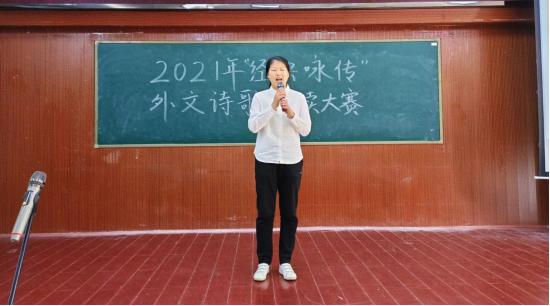 2021年"经 咏传"
外文诗歌 读大赛